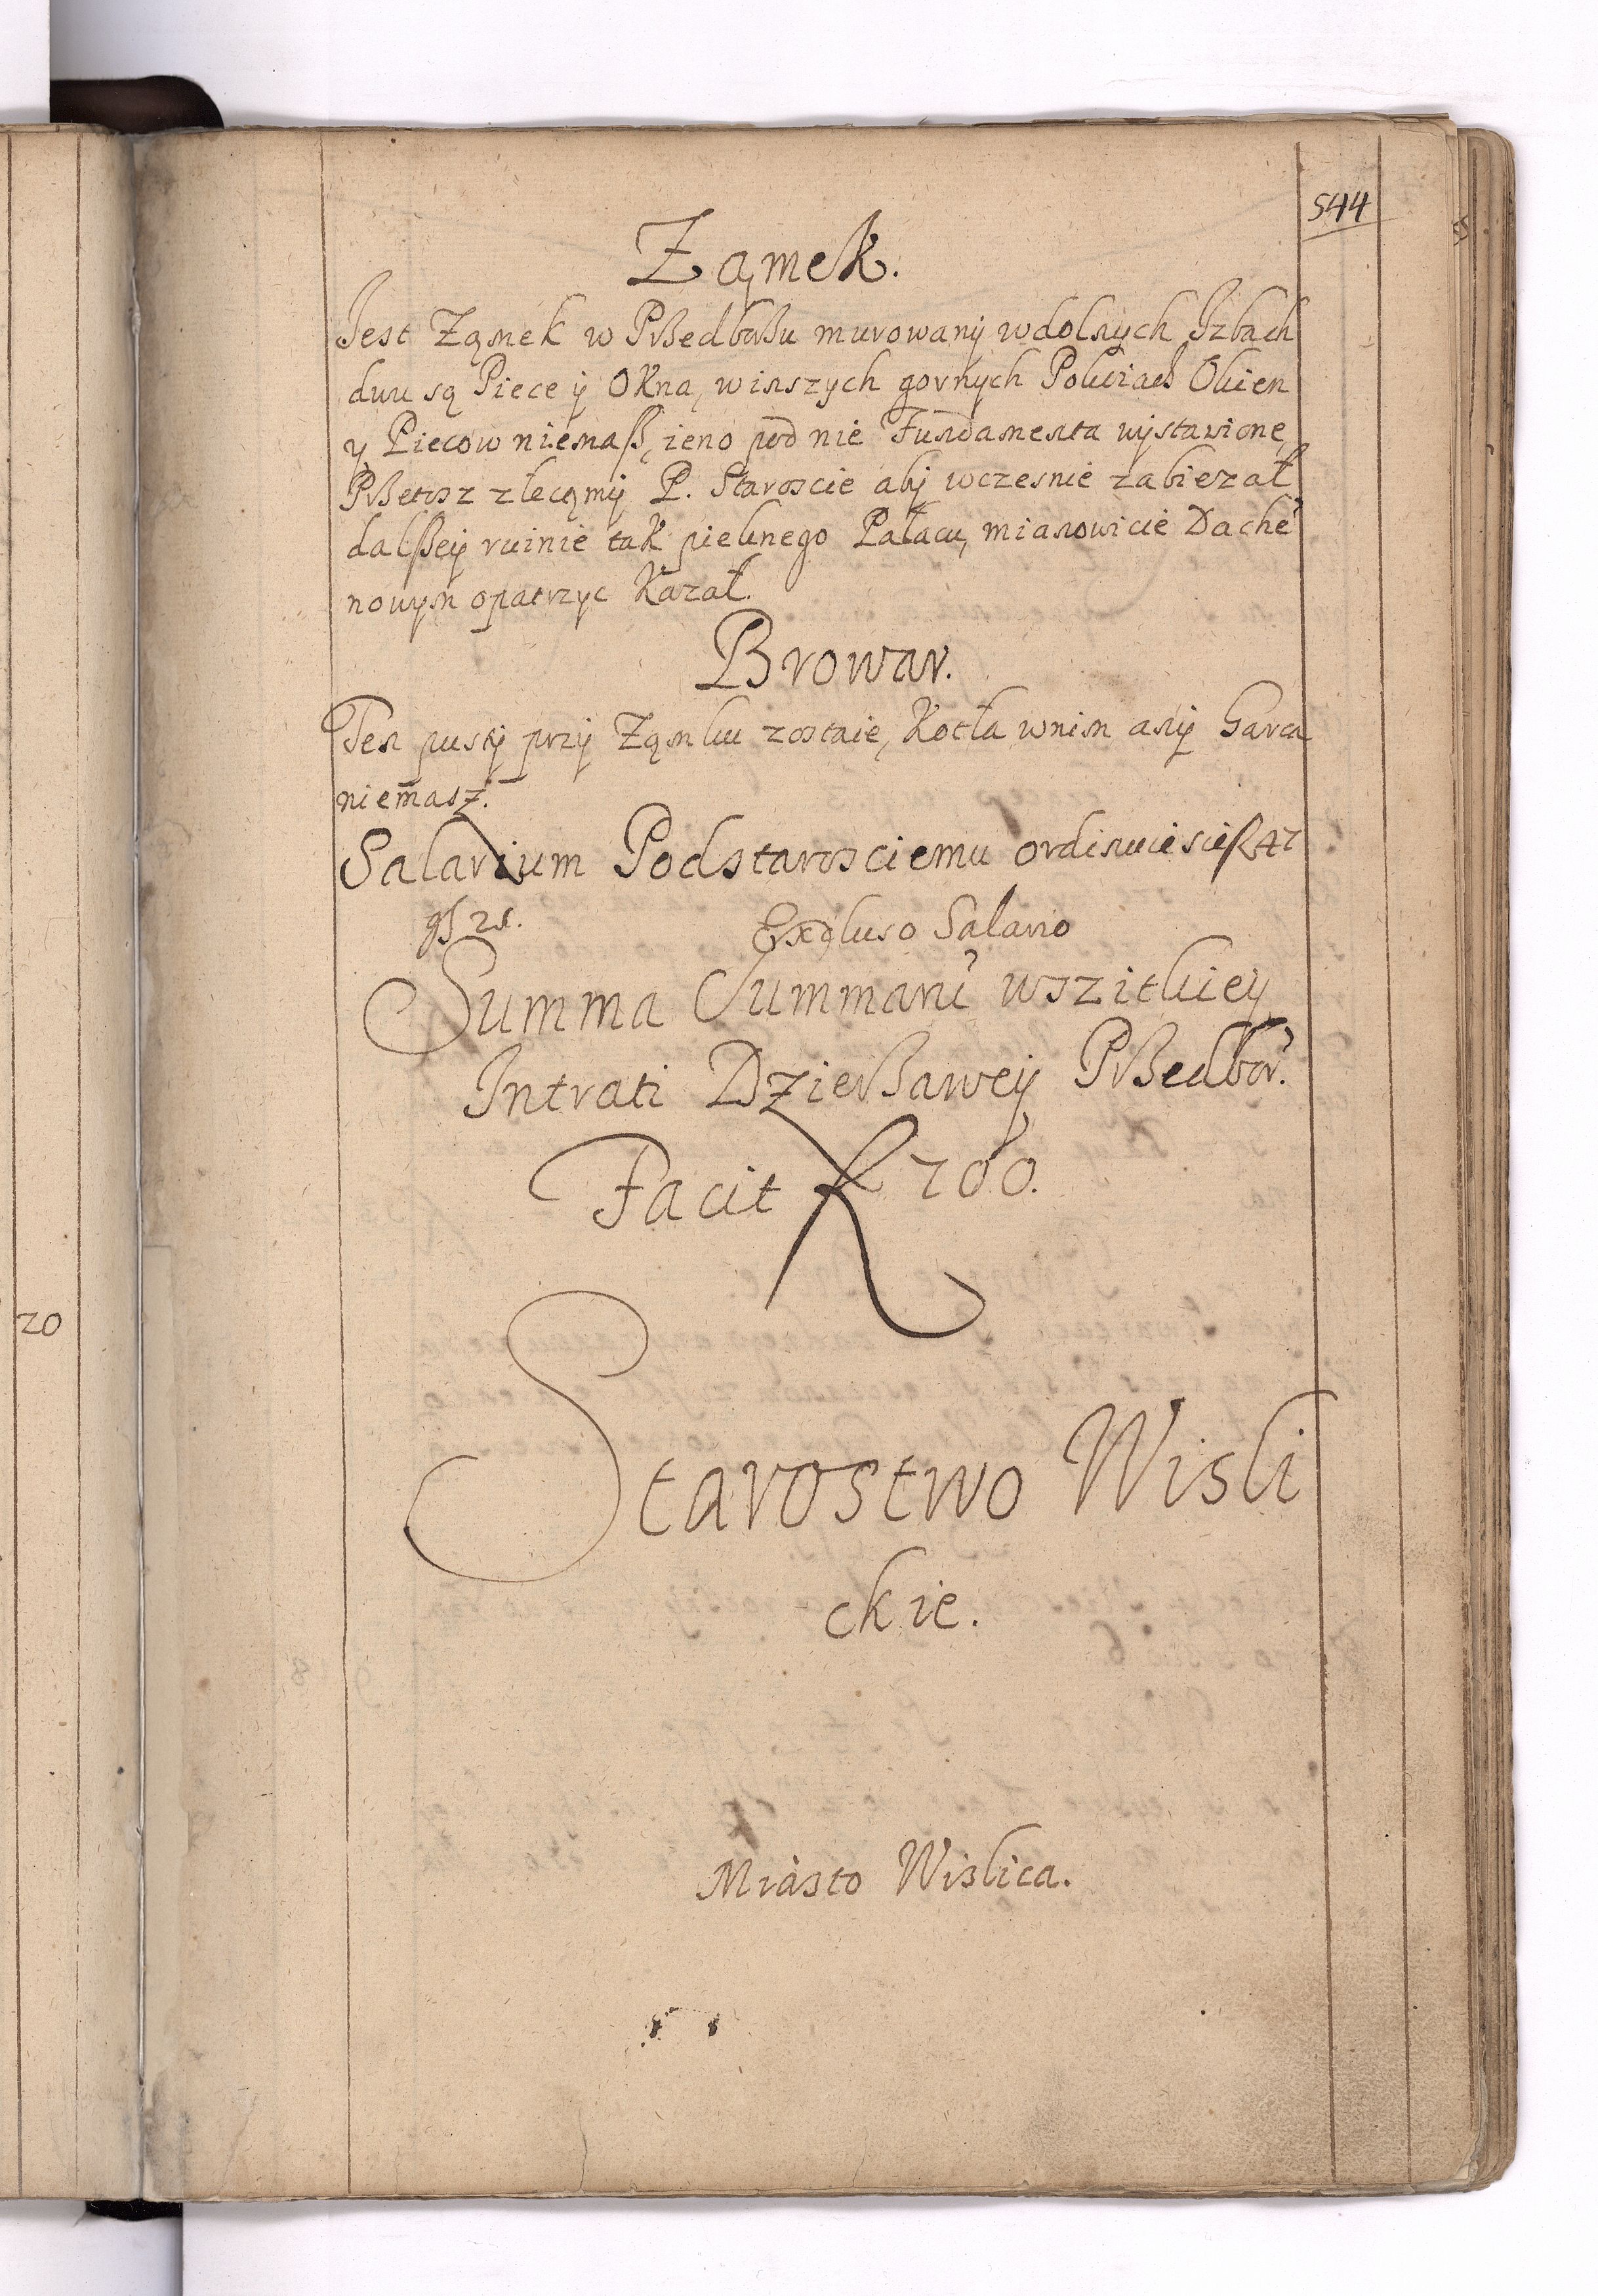 544
Ząmek.
Iest Ząmek w Pßedborßu murowany w dolnych Izbach
dwu są Piece ÿ Okna, w inszych gornych Pokoiach Okien
y Piecow niemaß, ieno pod nie Fundamenta wystawione,
Pßetosz zlecamÿ P. Staroscie abÿ wczesnie zabiezał
dalßeÿ ruinie tak pieknego Pałacu, mianowicie Dache
nowym opatrzyc kazał.
Browar.
Ten pustÿ przÿ Ząmku zostaie, Kotła w nim anÿ Garca
niemasz.
Salarium Podstarosciemu ordinuie sie
Excluso Salario
Summa Summarũ wszitkieÿ
Intrati Dzierßaweÿ Pßedbor.
Facit f 700.
20
Starostwo Wisli
ckie.
Miasto Wislica.